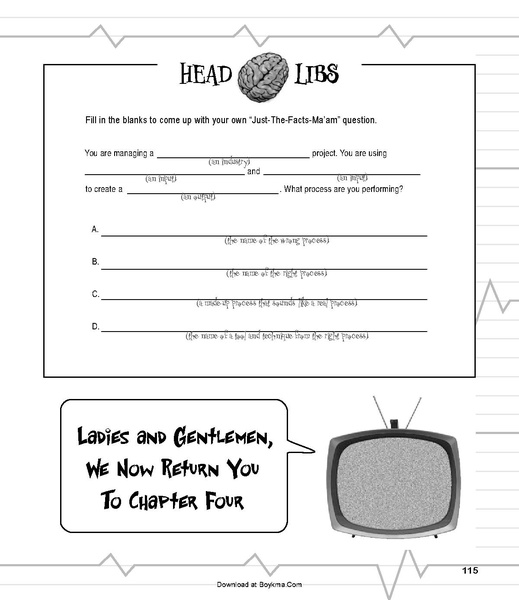 HEAD LIBS
Fill in the blanks to come up with your own “Just-The-Facts-Ma’am” question.
You are managing a project. You are using
(an industry)
and
(an input) (an input)
to create a . What process are you performing?
(an output)
A.
(the name of the wrong process)
B.
(the name of the right process)
C.
(a made-up process that sounds like a real process)
D.
(the name of a tool and technique from the right process)
Ladies and Gentlemen,
We Now Return You
To Chapter Four
115
Download at Boykma.Com